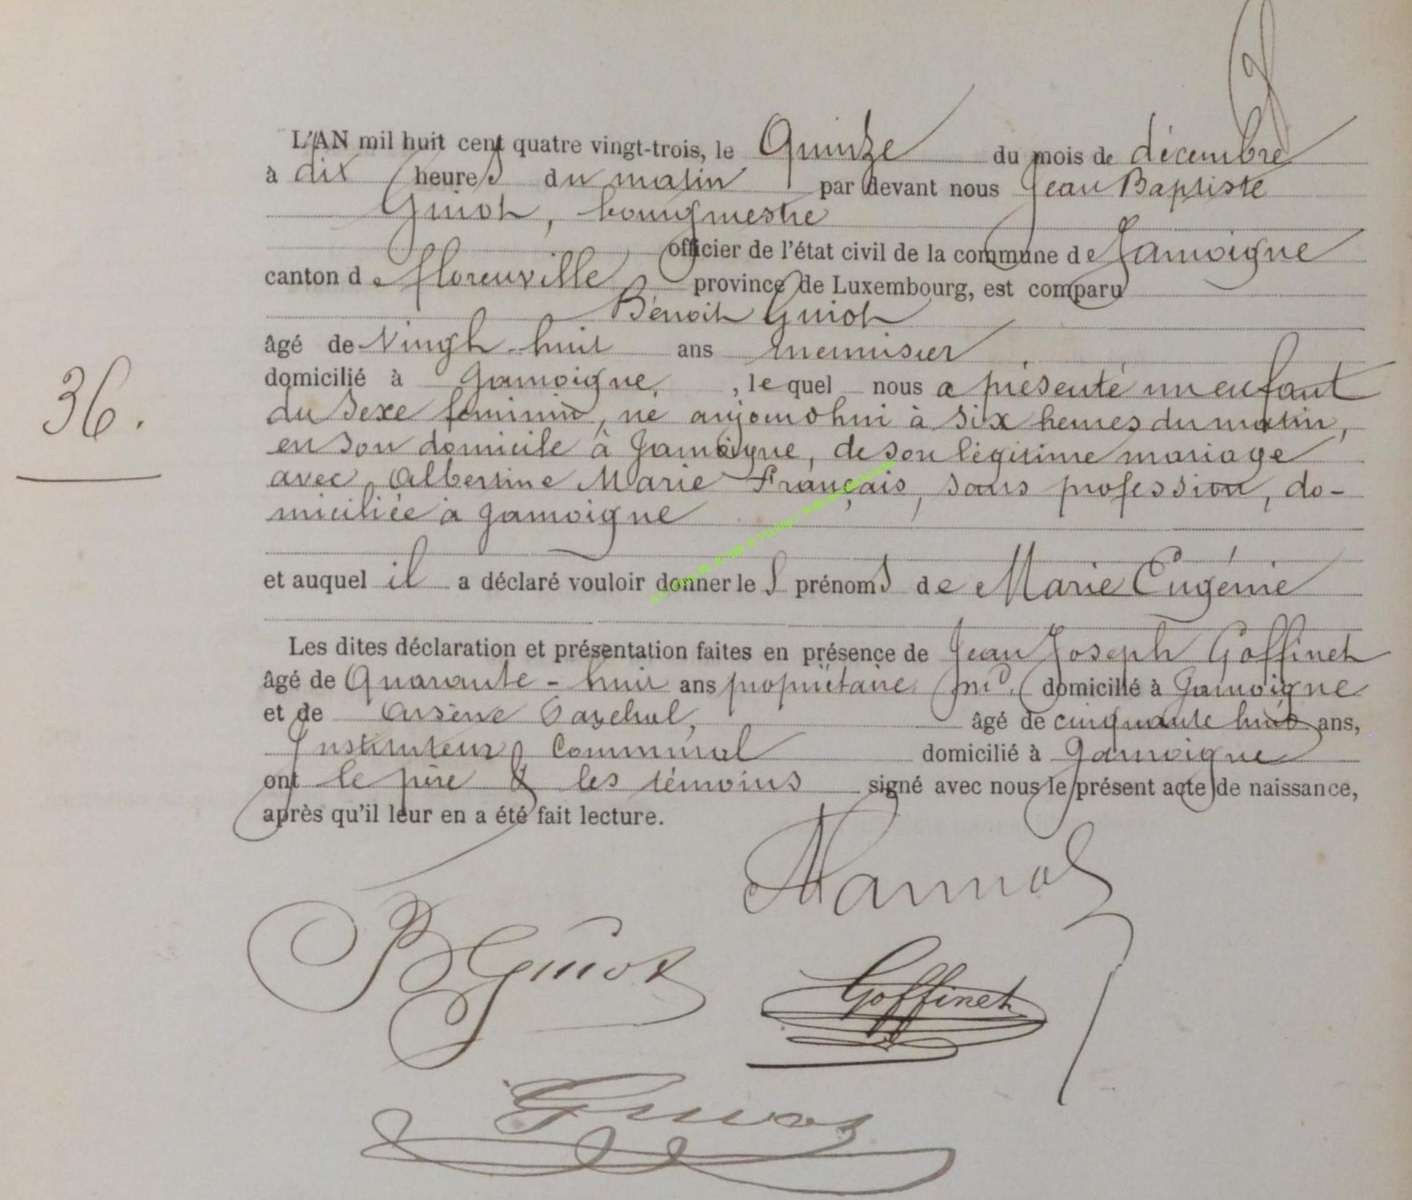 L'AN mil huit cent quatre vingt-trois, le Quinze du mois de décembre
à dix heures du matin par devant nous Jean Baptiste
Guiot, bourgmestre
officier de l'état civil de la commune de Jamoigne
canton de florenville province de Luxembourg, est comparu
Bénoit Guiot
âgé de Vingt-huit ans menuisier
domicilié à Jamoigne, lequel nous a présenté un enfant
du sexe feminin, né aujourdhui à six heures du matin,
36.
en son domicile à Jamoigne, de son légitime mariage
avec Albertine Marie Français, sans profession, do-
miciliée à Jamoigne
et auquel il a déclaré vouloir donner les prénoms de Marie Eugénie
Les dites déclaration et présentation faites en présence de Jean Joseph Goffinet
âgé de Quarante-huit ans propriétaire domicilié à Jamoigne
et de Arsène âgé de cinquante huit ans,
Instituteur Communal domicilié à Jamoigne
ont le père & les témoins signé avec nous le présent acte de naissance,
après qu'il leur en a été fait lecture.
B Guiot
Goffinet
Guiot